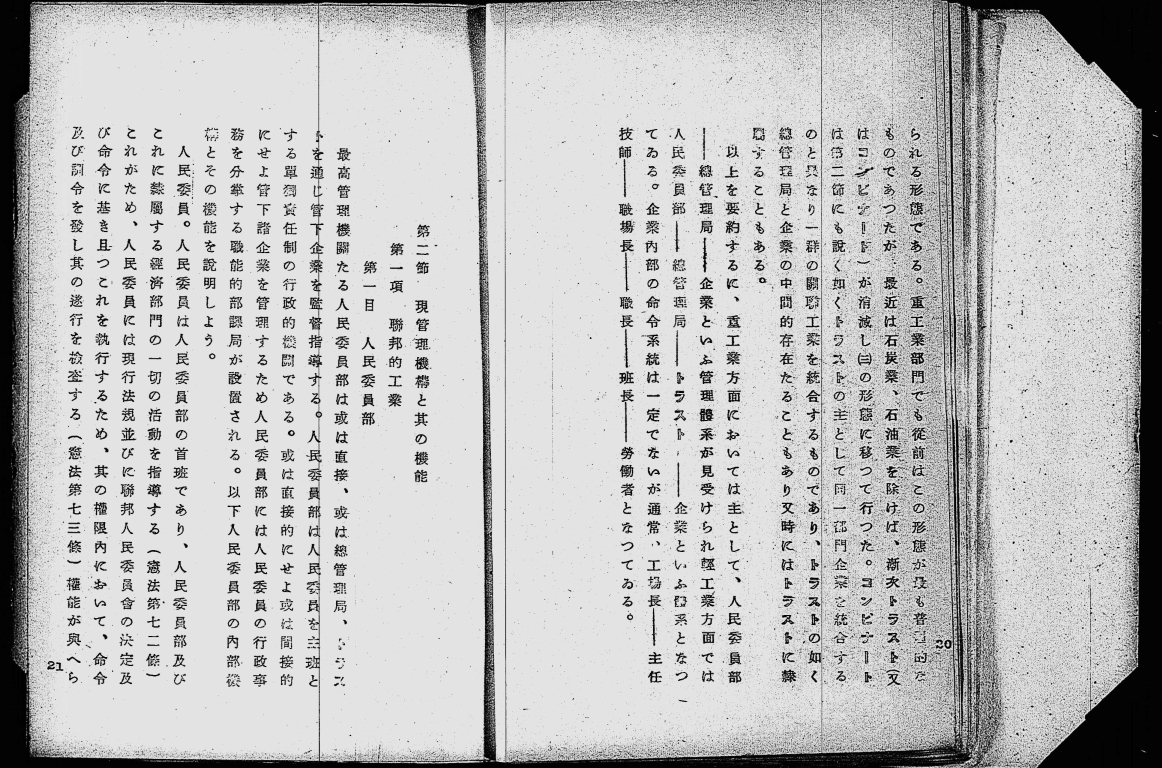 られる形態である。重工業部門でも從前はこの形態が最も普遍的な
ものであつたが、最近は石炭業、石油業を除けば、漸次トラスト（又
はコンビナート）が消滅し㈢の形態に移つて行つた。コンビナート
は第二節にも說く如くトラストの主として同一部門企業を統合する
のと異なり一群の關聯工業を統合するものであり、トラストの如く
總管理局と企業の中間的存在たることもあり又時にはトラストに隸
屬することもある。
以上を要約するに、重工業方面においては主として、人民委員部
──總管理局──企業といふ管理體系が見受けられ輕工業方面では
人民委員部──總管理局──トラスト──企業といふ體系となつ
てゐる。企業內部の命令系統は一定でないが通常、工場長──主任
技師──職場長──職長──班長──勞働者となつてゐる。
20
第二節　現管理機構と其の機能
第一項　聯邦的工業
第一目　人民委員部
最高管理機關たる人民委員部は或は直接、或は總管理局、トラス
トを通じ管下企業を監督指導する。人民委員部は人民委員を主班と
する單獨責任制の行政的機關である。或は直接的にせよ或は間接的
にせよ管下諸企業を管理するため人民委員部には人民委員の行政事
務を分掌する職能的部課局が設置される。以下人民委員部の內部機
構とその機能を說明しよう。
人民委員。人民委員は人民委員部の首班であり、人民委員部及び
これに隸屬する經濟部門の一切の活動を指導する（憲法第七二條）
これがため、人民委員には現行法規並びに聯邦人民委員會の決定及
び命令に基き且つこれを執行するため、其の權限內において、命令
及び訓令を發し其の遂行を檢査する（憲法第七三條）權能が與へら
21